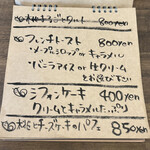 800yen
フレンチトースト 800yen
・メープルシロップ or キャラメル
・バニラアイス or 生クリーム
をお選び下さい
シフォンケーキ 400yen
クリームとキャラメルたっぷり
桃とチーズケーキのパフェ 850yen